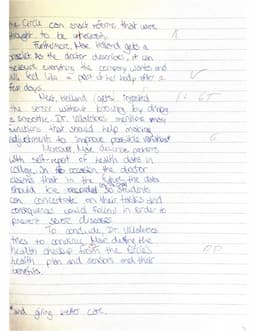 the Circle can start reforms that were
thought to be utnecesity.
Furthermore, Mae Holland gets a
bracelet. As the doctor describes, it can
measure everything the company wants and
will feel like a part of her body after a
few days.
Next, Holland gets ingested
the sensor without knowing by drinking
a smoothie. Dr. Villalobos mentions many
functions that should help making
adjustments to improve possible
Moreover, Mae discusses
with self-report of health data in
college. On occasion the doctor
claims that in the future the data
should be recorded so students
can concentrate on their tasks and
consequences could follow in order to
prevent severe diseases.
To conclude, Dr. Villalobos
tries to convince Mae during the
health checkup from the Circle's
health plan and sensors and their
benefits.
*and giving better care.